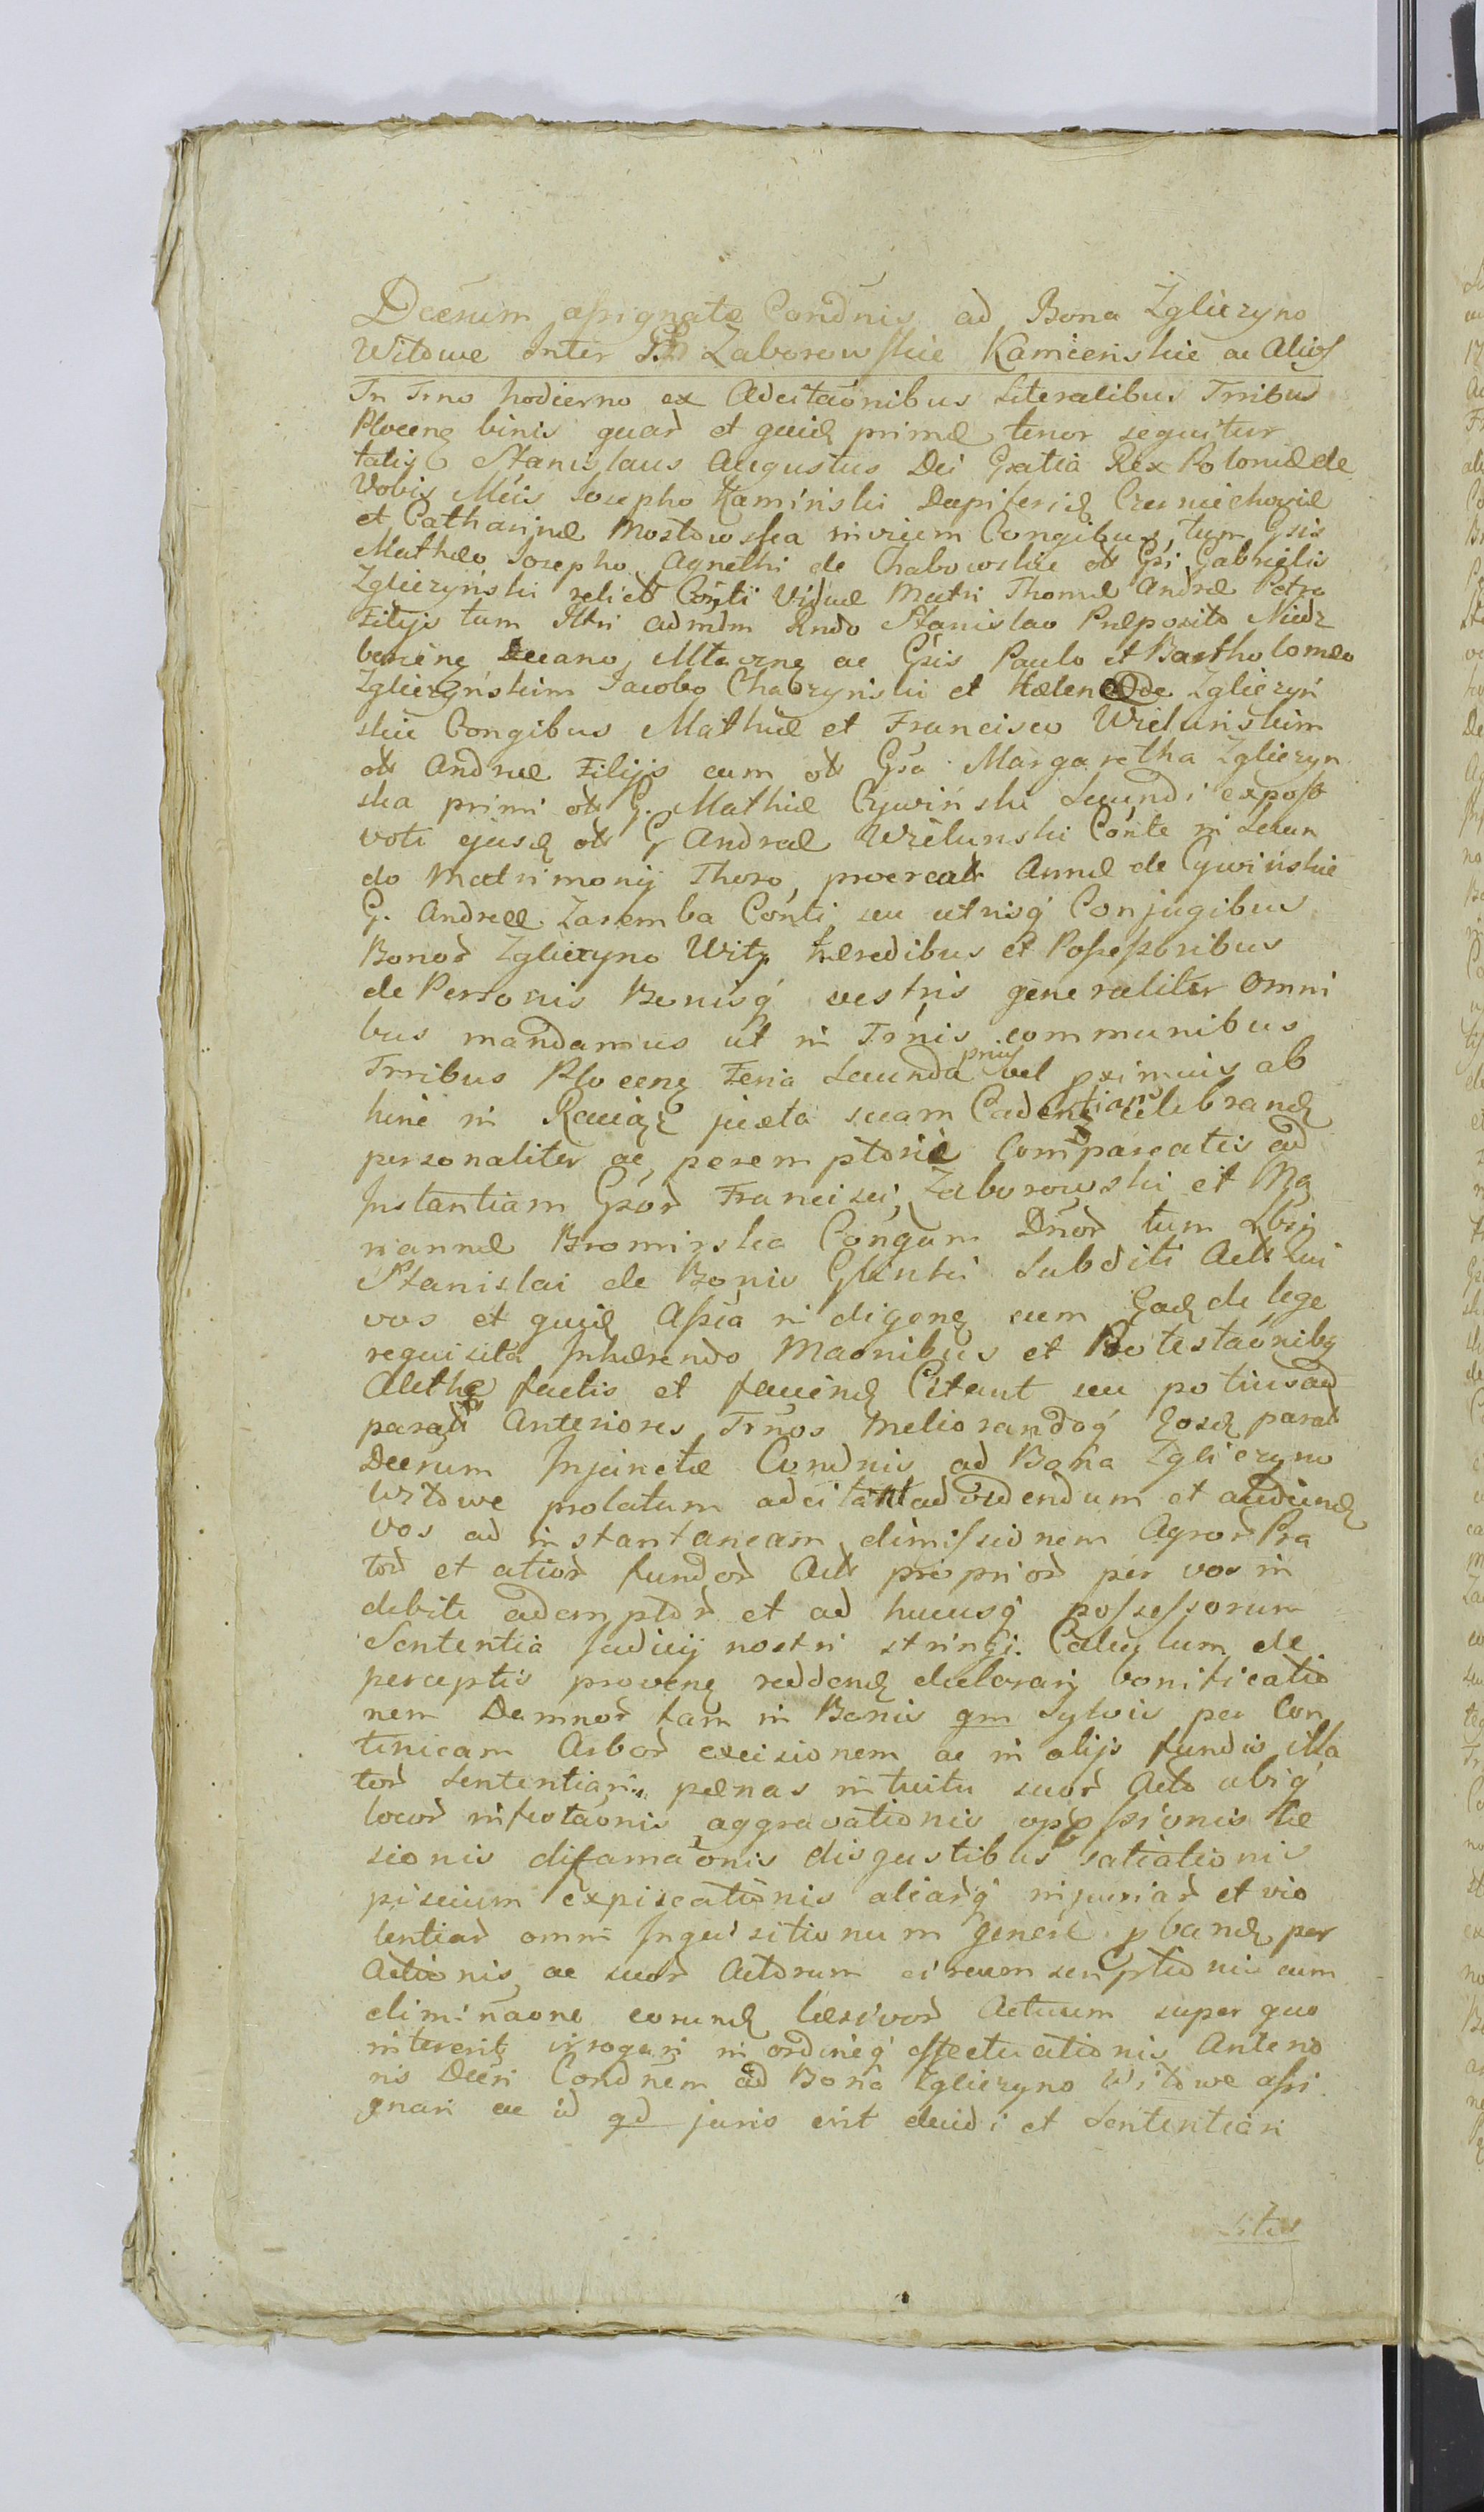 Decrum assignatæ Condnis ad Bona Zgliczyno
Witowe Inter G.D Zaborowskie Kamienskie ac Alios
In Trno hodierno ex Adcitaonibus Literalibus Trribus
Plocen binis quar et quid primæ tenor sequitur
talis Stanislaus Augustus Dei Gratia Rex Poloniæ de
Vobis Mcis Josepho Kaminski Dapiferid Czerniechoviæ
et Catharinæ Mostowska invicem Congibus, tum Gsis
Mathæo Josepho Agnethi de Chabowskie olt Gsi Gabrielis
Zgliczynski relict Conti Viduæ Matri Thomæ Andræ Petro
Filijs tum Illri admdm Rndo Stanislao Præposito Niedz
Decano, ac Gsis Paulo et Bartholomæo
Zgliczynskim Jacobo Chadzynski et Helenæ de Zgliczyń
skie Congibus Mathiæ et Francisco Wielunskim
olt Andreæ Filijs cum olt Gsa Margaretha Zgliczyn
ska primi olt G. Mathiæ Cywiński Secundi expost
voti ejusd olt G Andreæ Wielunski Conte in Secun
do Matrimonij Thoro, procreat Annæ de Cywińskie
G. Andreæ Zaremba Conti, seu utrisq Conjugibus
Bonor Zgliczyno Wity hæredibus et Possessoribus
de Personis Bonisq vestris generaliter omni
bus mandamus ut in Trnis communibus
Trribus Plocen Feria Secunda prius vel pximis ab
hinc in Raciąz juxta suam Cadentiam celebrand
personaliter ac peremptorie Compareatis ad
Instantiam Gsor Francisci Zaborowski et Ma
riannæ Bromirska Congum Dnor tum Lbsi
Stanislai de Bonis Glinki Subditi Act Qui
vos et quid Assia indigen cum Ead de lege
requisita Inhærendo Maonibus et Protestaonibq
Aleth factis et faciend Citant seu potius ad
parat Anteriores Trnos Meliorandoq Eosd parat
Decrum Injunctæ Condnis ad Bona Zgliczyno
Witowe prolatum adcitant ad videndum et audiend
vos ad instantaneam dimissionem Agror Pra
tor et alior fundor Act proprior per vos in
debite ademptor et ad hucusq possessorum
Sententia Judicij nostri stringi. Calculum de
perceptis proven reddend declarari bonificatio
nem Damnor tam in Bonis qm Sylvis per Con
tinuam Arbor excisionem ac in alijs fundis illa
tor Sententiari, pænas intuitu suor Acto ubiq
locor infestaonis aggravationis oppssionis læ
sionis difamaonis disgustibus satiationis
piscium expiscationis aliarq injuriar et vio
lentiar omni Inquisitionum genere pband per
Actionis ac suor Actorum circumscriptionis cum
eliminaone eorund læsivor Actuum super quo
intererit irrogari in ordineq effectuationis Anterio
ris Decri Condnem ad Bona Zgliczyno Witowe assi
gnari ac id qd juris erit decidi et Sententiari
Litis